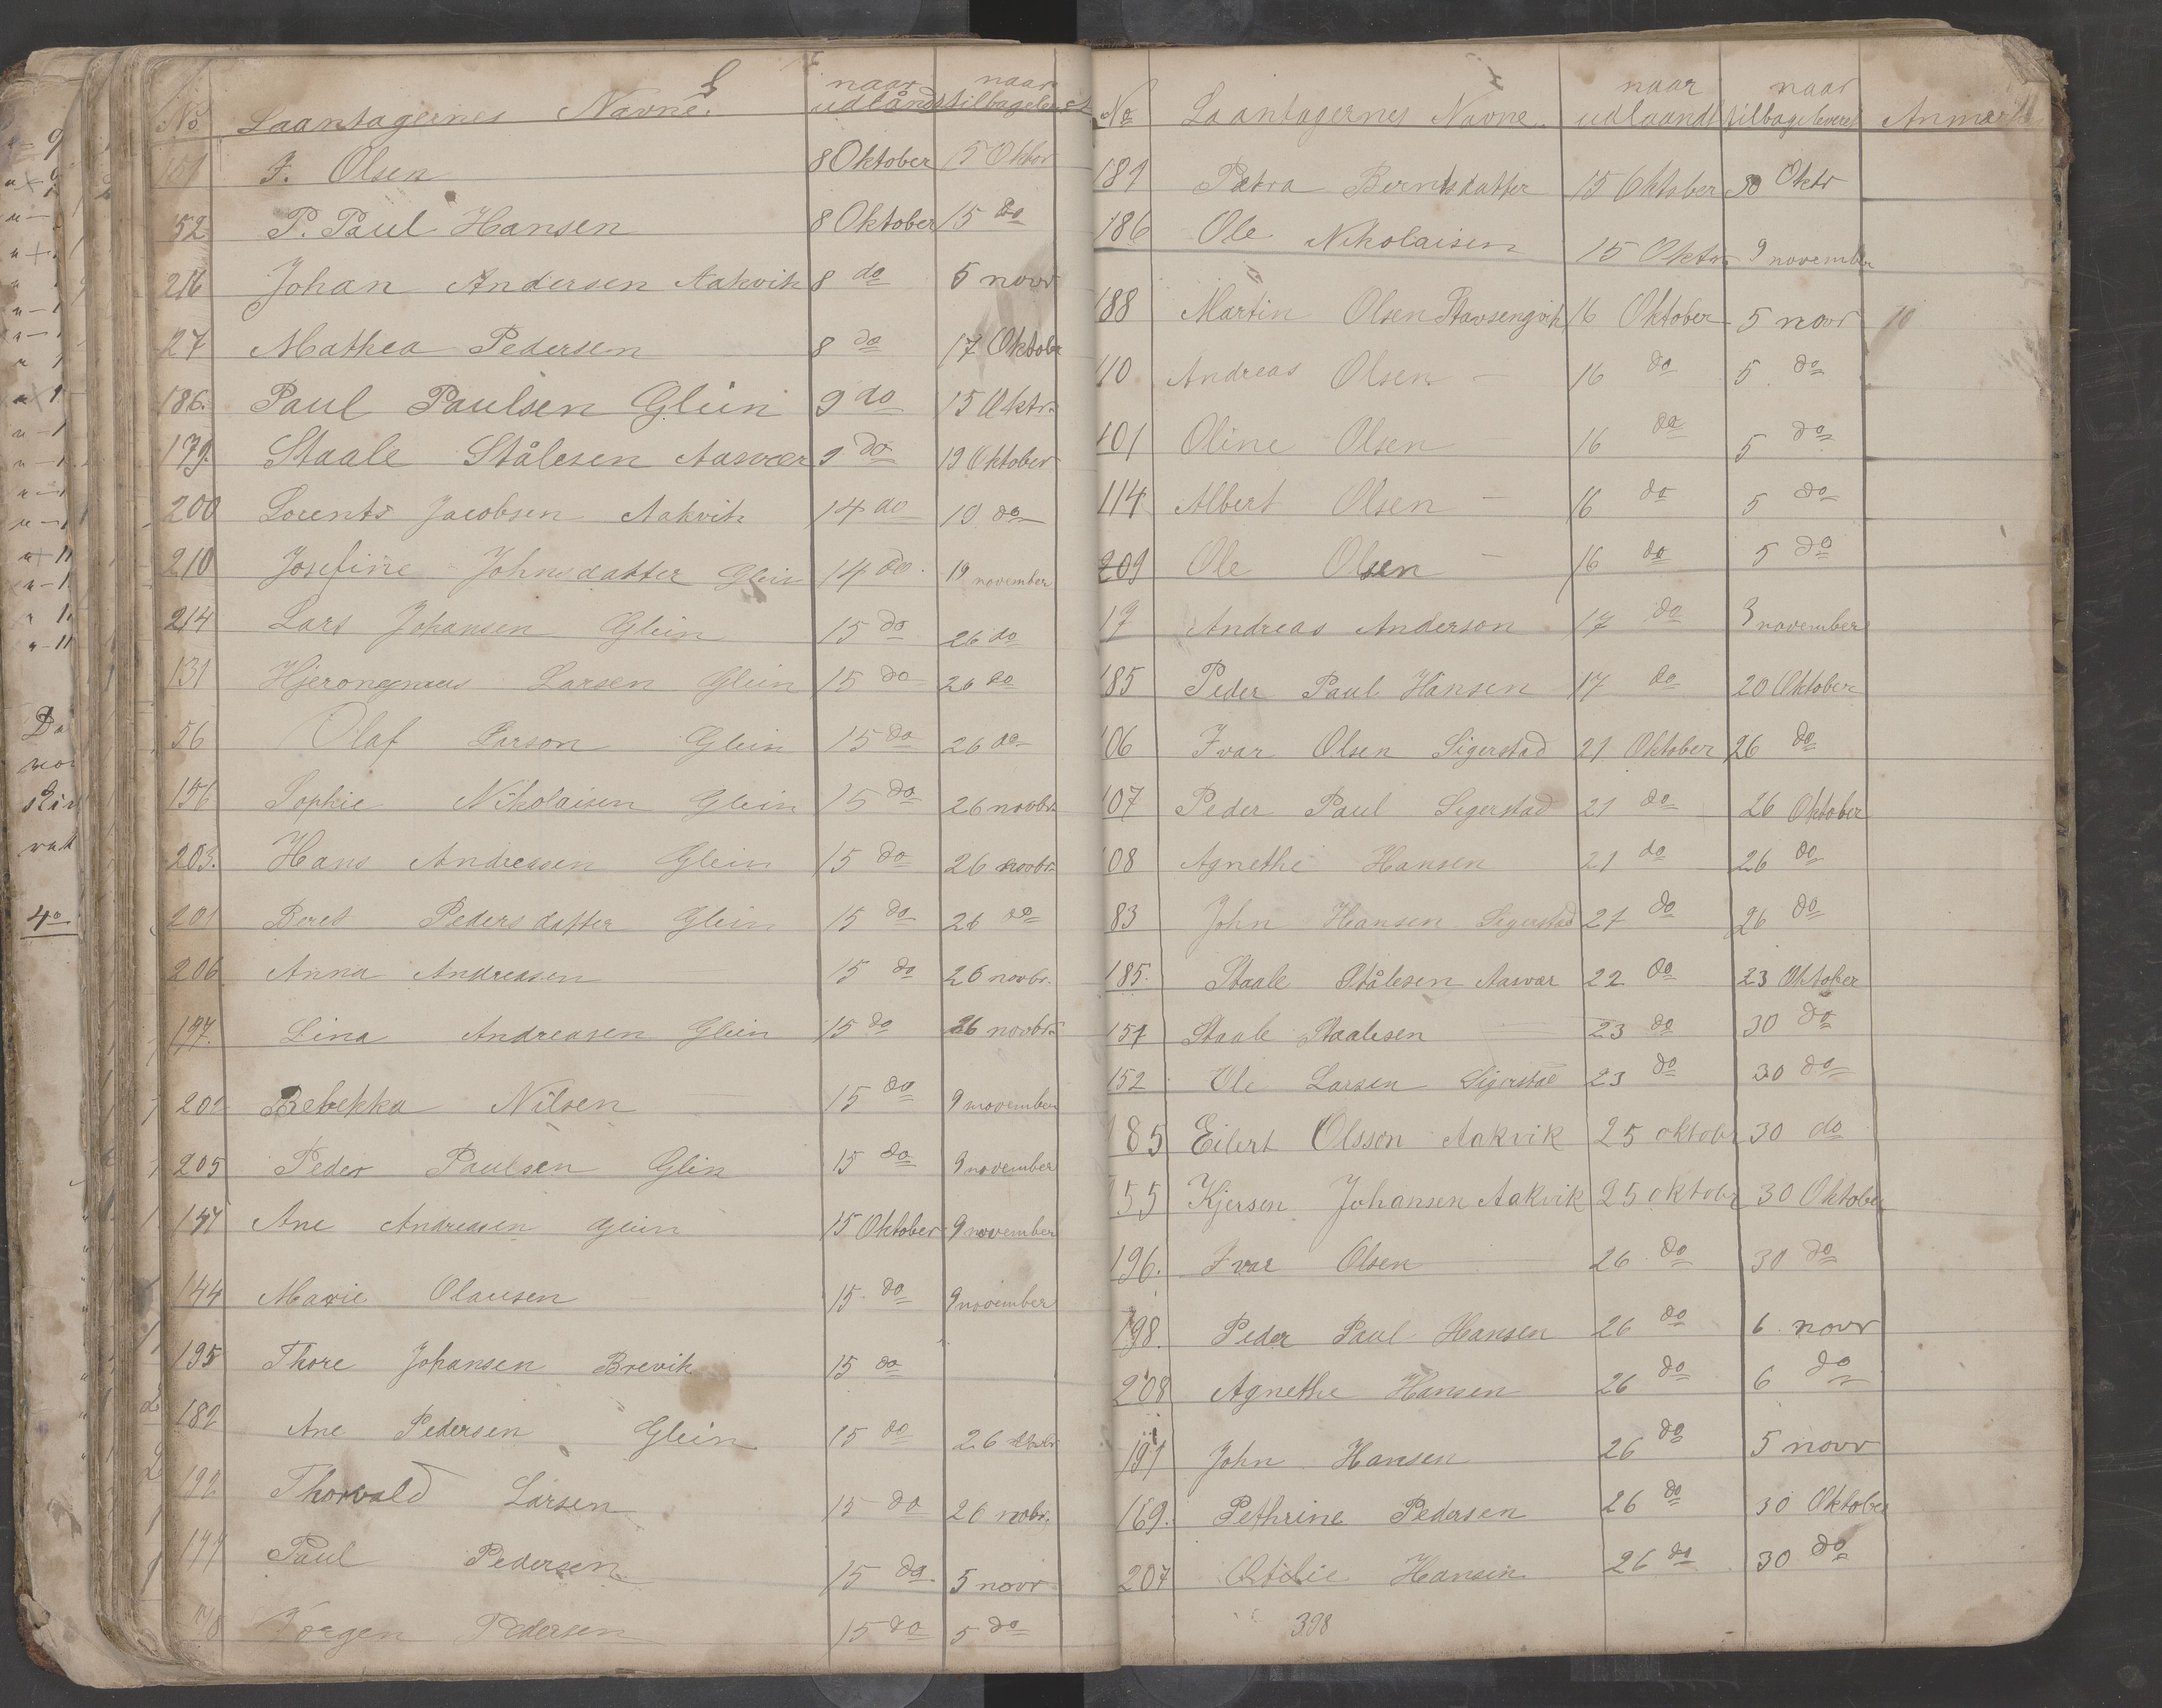 No Laantagernes Navne. naar udlåndt naar tilbageleveret
101 F. Olsen 8 Oktober 15 Oktbr
52 P. Paul Hansen 8 Oktober 15 do
216 Johan Andersen Aakvik 8 do 5 novr
27 Mathea Pedersen 8 do 17 Oktobr
186. Paul Paulsen Glein 9 do 15 Oktr.
179. Staale Stålesen Aasvær 9 do 19 Oktober
200 Lorents Jacobsen Aakvik 14 do 19 do
210 Josefine Johnsdatter Glein 14 do. 19 november
214 Lars Johansen Glein 15 do 26 do
131 Hjeronymus Larsen Glein 15 do 26 do
56 Olaf Larson Glein 15 do 26 do
156 Sophie Nikolaisen Glein 15 do 26 novbr.
203. Hans Andreasen Glein 15 do 26 novbr.
201 Beret Pedersdatter Glein 15 do 26 do
206 Anna Andreasen 15 do 26 novbr.
197. Lina Andreasen Glein 15 do 26 novbr.
202 Rebekka Nilsen 15 do 9 november
205 Peder Paulsen Glein 15 do 9 november
147 Ane Andreasen Glein 15 Oktober 9 november
144 Marie Olausen 15 do 9 november
195 Thore Johansen Brevik 15 do
182 Ane Pedersen Glein 15 do 26
192 Thorvald Larsen 15 do 26 nobr.
177 Paul Pedersen 15 do. 5 novr
Jørgen Pedersen 15 do 5 do
No Laantagernes Navne. naar udlaandt naar tilbageleveret Anmærk
181 Petra Berntsdatter 15 Oktober 30 Oktr
186 Ole Nikolaisen 15 Oktr 9 november
188 Martin Olsen Stavsengvik 16 Oktober 5 novr 10
110 Andreas Olsen — 16 do 5 do
101 Oline Olsen — 16 do 5 do
114 Albert Olsen — 16 do 5 do
209 Ole Olsen — 16 do 5 do
17 Andreas Anderson 17 do 9 november
185 Peder Paul Hansen 17 do 20 Oktober
106 Ivar Olsen Sigerstad 21 Oktober 26 do
107 Peder Paul Sigerstad 21 do 26 Oktober
108 Agnethe Hansen 21 do 26 do
83 John Hansen Sigerstad 21 do 26 do
185. Staale Stålesen Aasvær 22 do 23 Oktober
157 Staale Staalesen 23 do 30 do
152 Ole Larsen Sigerstad 23 do 30 do
185 Eilert Olsson Aakvik 25 oktobr 30 do
155 Kjersen Johansen Aakvik 25 oktobr 30 Oktober
196. Ivar Olsen 26 do 30 do
198. Peder Paul Hansen 26 do 6 novr
208 Agnethe Hansen 26 do 6 do
191 John Hansen 26 do 5 novr
169. Pethrine Pedersen 26 do 30 Oktober
207 Otilie Hansen 26 do 30 do
398